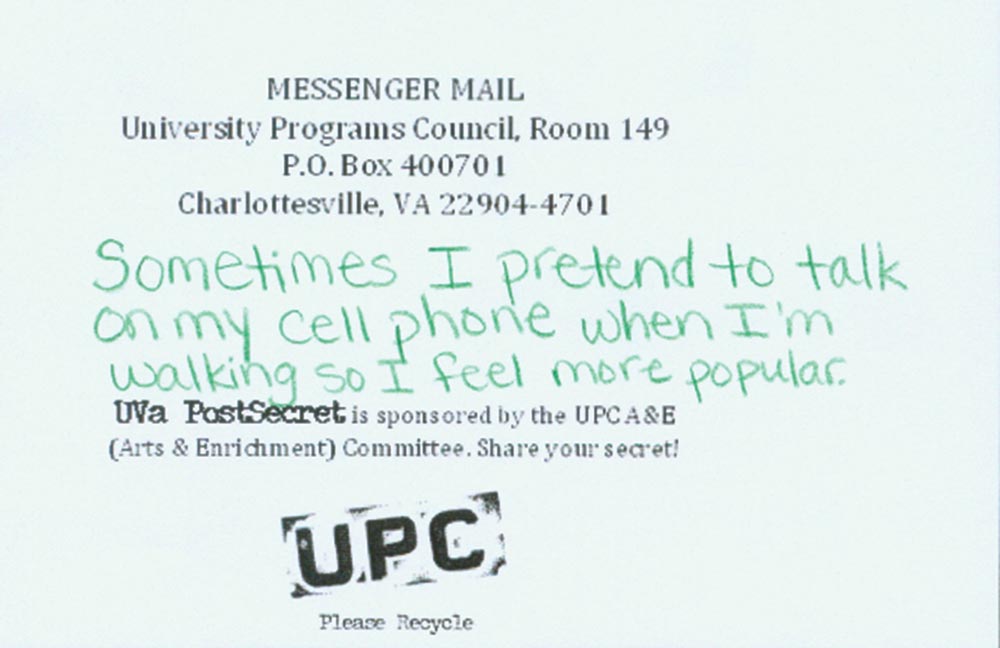 MESSENGER MAIL
University Programs Council, Room 149
P.O. Box 400701
Charlottesville, VA 22904-4701
Sometimes I pretend to talk
on my cell phone when I'm
walking so I feel more popular.
UVa PostSecret is sponsored by the UPC A&E
(Arts & Enrichment) Committee. Share your secret!
UPC
Please Recycle